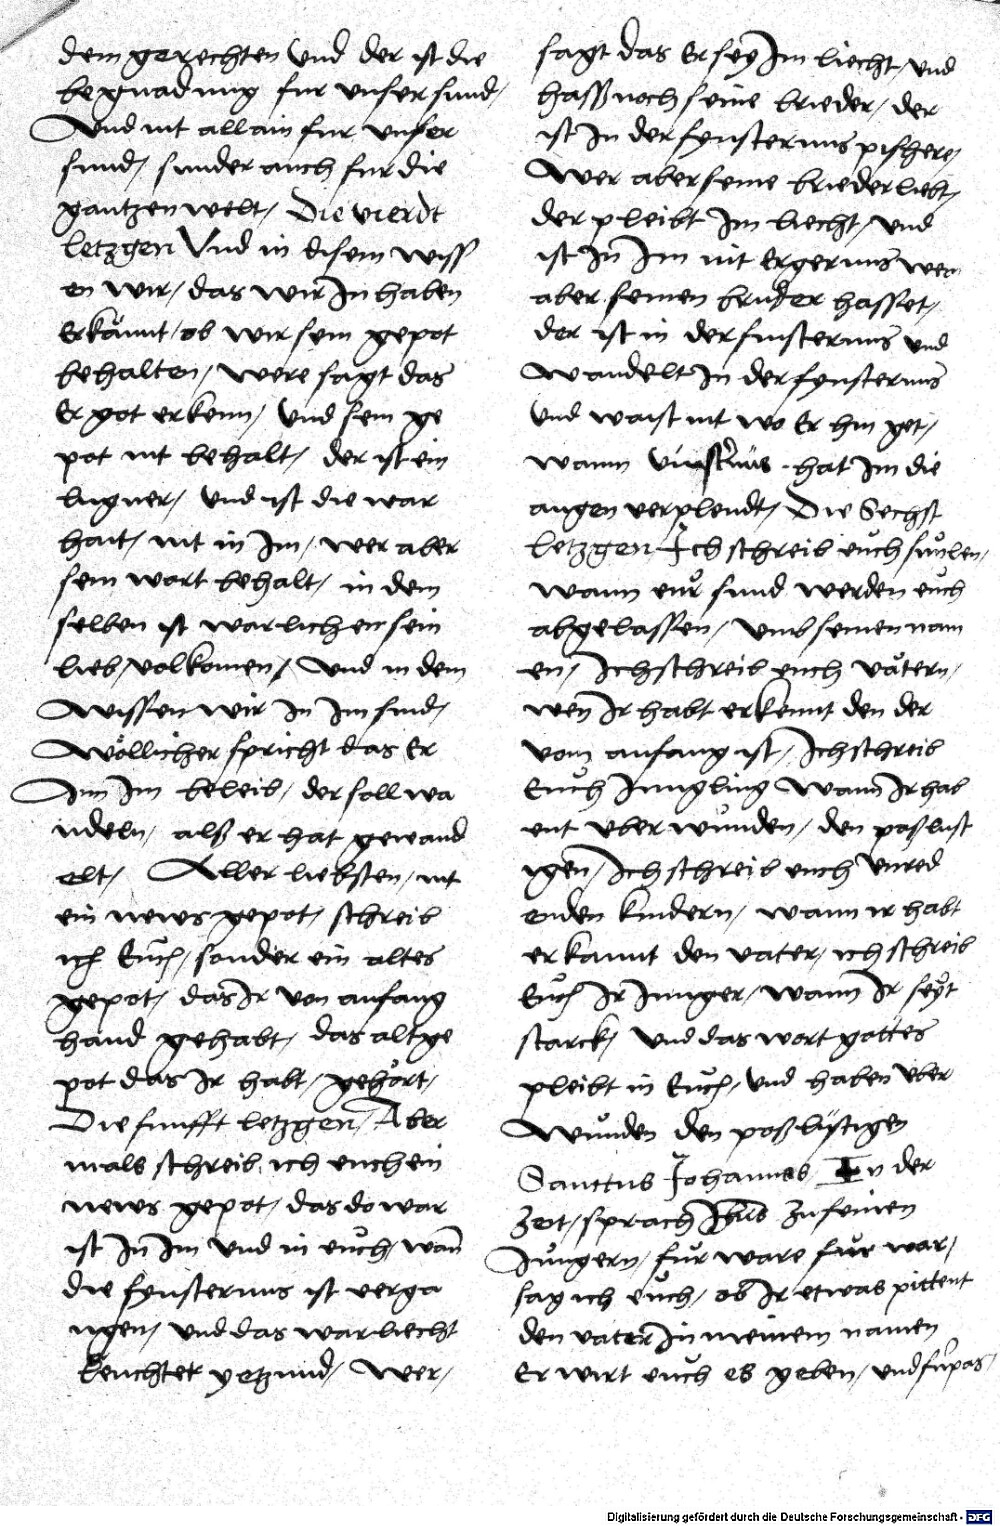 dem gerechten Vnd der ist die
begnadung fur vnser sund/
Vnd nit allain fur vnser
sund/ sunder auch fur die
gantzen welt/ Die vierdt
letzgen Vnd in disem wiss
en wir/ das wir In haben
Erkannt/ ob wir sein gepot
behalten/ were sagt das
Er got erkenn/ Vnd sein ge
pot nit behalt/ der ist ein
lugner/ vnd ist die war
hait/ nit in Im/ wer aber
sein wort behalt/ in dem
selben ist warlichen sein
lieb/ volkomen/ Vnd in dem
wissen wir In Im sind/
Wöllicher spricht das Er
Inn Im beleib/ der soll wa
ndeln/ alß er hat gewand
elt/ Aller liebsten/ nit
ein news gepot/ schreib
ich Euch/ sonder ein altes
gepot/ das Ir von anfang
hand gehabt/ das alt ge
pot das Ir habt/ gehört/
Die funfft letzgen/ Aber
mals schreib ich euch ein
news gepot/ das do war
ist In Im Vnd in euch/ wan
die fynsternus ist verga
ngen/ vnd das war liecht
leuchtet yetzund/ Wer/
sagt das Er sey Im liecht/ vnd
hasß noch seine brieder/ der
ist In der fynsternus pishere/
Wer aber seine brieder liebt/
der pleibt Im liecht/ vnd
ist In Im nit Ergernus wer
aber seinen bruder hasset/
der ist in der finsternus vnd
wandelt In der fynsternus
vnd waist nit wo Er hin get/
wann vinsternus hat Im die
augen verplendt/ Die Sechst
letzgen Ich schreib euch sünlen/
wann eur sund werden euch
abgelassen/ vmb seinen nam
en/ Ich schreib euch vätern/
wen Ir habt erkennt den der
vom anfang ist/ Ich schreib
Euch Jungling Wann Ir hab
ent vber wunden/ den poßlist
igen/ Ich schreib euch Vnred
enden kindern/ wann ir habt
erkannt den vater/ ich schreib
Euch Ir Junger/ wann Ir seyt
starck/ vnd das wort gottes
pleibt in Euch/ vnd haben vber
wunden den poßlistigen
Sanctus Johannes In der
zeit/ sprach Jhus zu seinen
Jungern/ für ware für war/
sag ich euch/ ob Ir etwas pittent
den vater In meinem namen
Er wirt euch es geben/ vnd fürpas/
Digitalisierung gefördert durch die Deutsche Forschungsgemeinschaft - DFG